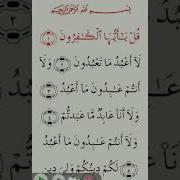 بِسْمِ ٱللَّهِ ٱلرَّحْمَٰنِ ٱلرَّحِيمِ
قُلْ يَٰٓأَيُّهَا ٱلْكَٰفِرُونَ ١
لَآ أَعْبُدُ مَا تَعْبُدُونَ ٢ وَلَآ
أَنتُمْ عَٰبِدُونَ مَآ أَعْبُدُ ٣
وَلَآ أَنَا۠ عَابِدٌ مَّا عَبَدتُّمْ ٤
وَلَآ أَنتُمْ عَٰبِدُونَ مَآ أَعْبُدُ
٥ لَكُمْ دِينُكُمْ وَلِىَ دِينِ